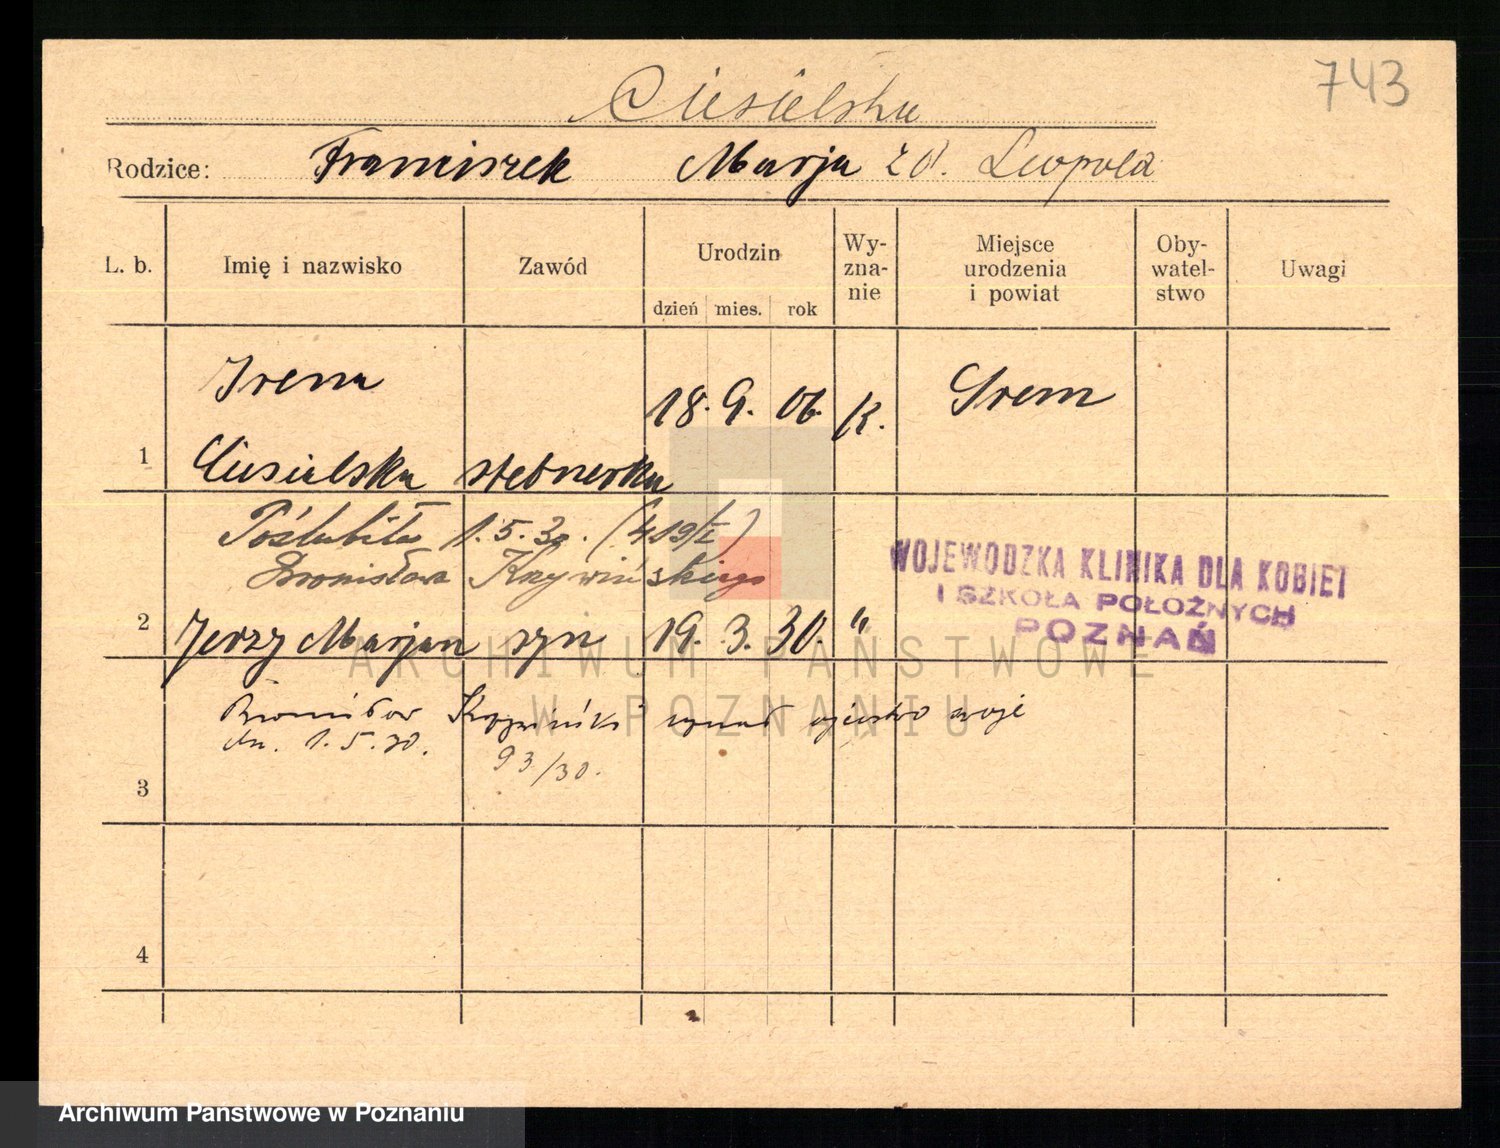 743
Ciesielska
Rodzice: Franciszek Marja zd. Leopold
L. b. Imię i nazwisko Zawód Urodzin Wy-zna-nie Miejsce urodzenia i powiat Oby-watel-stwo Uwagi
dzień mies. rok
Irena
18. 9. 06. k. Srem
1 Ciesielska stebnerka
Poślubiła 1.5.30. (419/I)
Bronisława Krzywińskiego
2 Jerzy Marjan syn 19. 3. 30. "
WOJEWODZKA KLINIKA DLA KOBIET
I SZKOŁA POŁOŻNYCH
POZNAŃ
Bronisław Krzywiński uznał ojcostwo swoje
dn. 1.5.30.
93/30.
3
4
ARCHIWUM PAŃSTWOWE
W POZNANIU
Archiwum Państwowe w Poznaniu